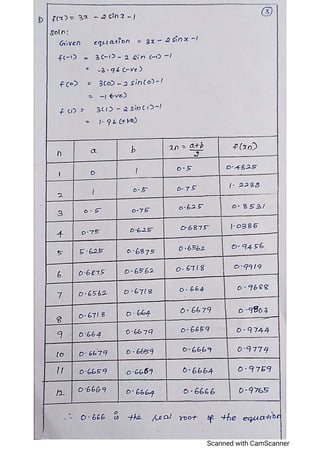 3
D f(x) = 3x - 2 sin x - 1
Soln:
Given equation = 3x - 2 sin x - 1
f(-1) = 3(-1) - 2 sin (-1) - 1
= -3.96 (-ve)
f(0) = 3(0) - 2 sin(0) - 1
= -1 (-ve)
f(1) = 3(1) - 2 sin(1) - 1
= 1.96 (+ve)
n a b xn = a+b/2 f(xn)
1 0 1 0.5 0.4825
2 1 0.5 0.75 1.2238
3 0.5 0.75 0.625 0.8531
4 0.75 0.625 0.6875 1.0385
5 5.625 0.6875 0.6562 0.9456
6 0.6875 0.6562 0.6718 0.9919
7 0.6562 0.6718 0.664 0.9688
8 0.6718 0.664 0.6679 0.9803
9 0.664 0.6679 0.6659 0.9744
10 0.6679 0.6659 0.6669 0.9774
11 0.6659 0.6669 0.6664 0.9759
12. 0.6669 0.6664 0.6666 0.9765
∴ 0.666 is the real root of the equation
Scanned with CamScanner